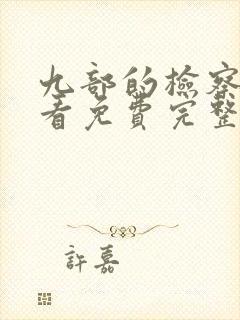 九部的檢察
看免費完整
許嘉